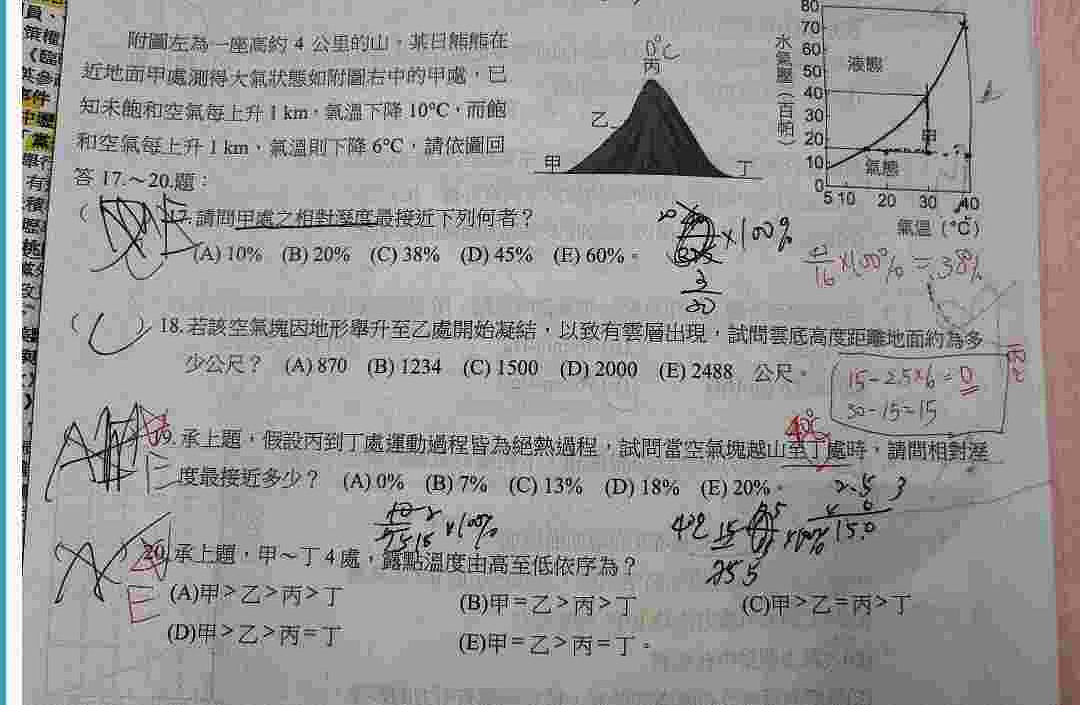 附圖左為一座高約 4 公里的山，某日熊熊在
近地面甲處測得大氣狀態如附圖右中的甲處，已
知未飽和空氣每上升 1 km，氣溫下降 10°C，而飽
和空氣每上升 1 km，氣溫則下降 6°C，請依圖回
答 17.～20.題：
0°C
丙
乙
甲
丁
80
70
60
50
40
30
20
10
0
水氣壓（百帕）
液態
甲
氣態
5 10 20 30 40
氣溫 (°C)
17.請問甲處之相對溼度最接近下列何者？
(A) 10% (B) 20% (C) 38% (D) 45% (E) 60%。
×100%
3
30
16 ×100% = 38%
18.若該空氣塊因地形舉升至乙處開始凝結，以致有雲層出現，試問雲底高度距離地面約為多
少公尺？ (A) 870 (B) 1234 (C) 1500 (D) 2000 (E) 2488 公尺。
15-2.5×6=0
30-15=15
40°C
19.承上題，假設丙到丁處運動過程皆為絕熱過程，試問當空氣塊越山至丁處時，請問相對溼
度最接近多少？ (A) 0% (B) 7% (C) 13% (D) 18% (E) 20%。
E
2.5 3
×100%
15.0
20.承上題，甲～丁 4 處，露點溫度由高至低依序為？
E
(A)甲＞乙＞丙＞丁
(B)甲＝乙＞丙＞丁
(C)甲＞乙＝丙＞丁
(D)甲＞乙＞丙＝丁
(E)甲＝乙＞丙＝丁。